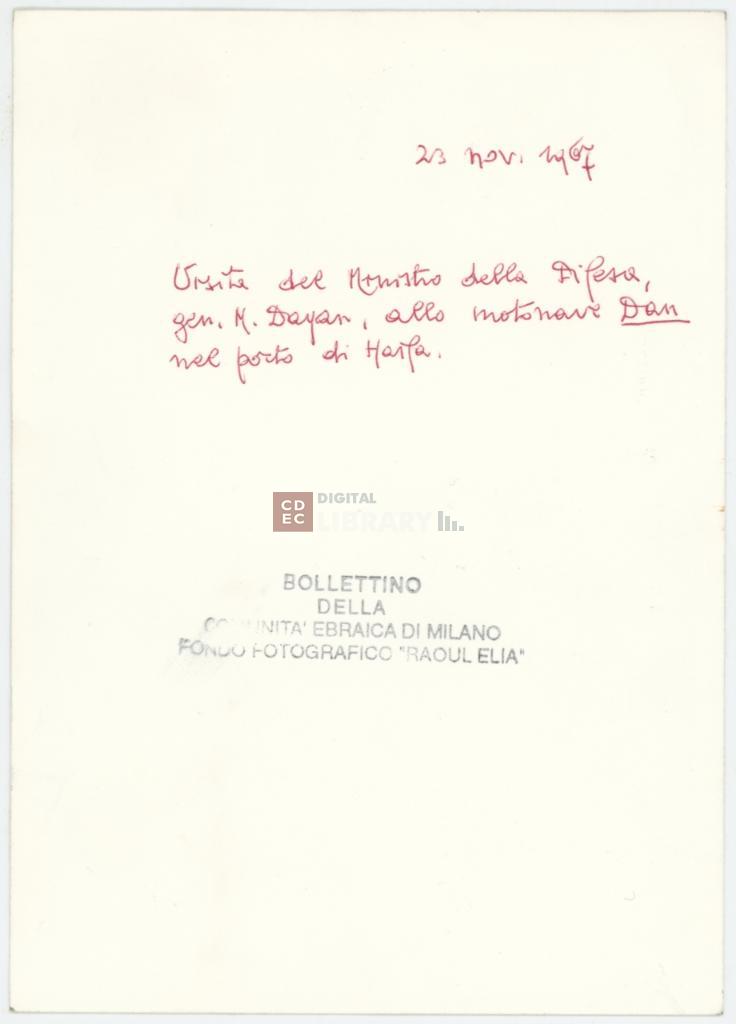 23 nov. 1967
Visita del Ministro della Difesa,
gen. M. Dayan, alla motonave Dan
nel porto di Haifa.
CD
EC
DIGITAL
LIBRARY
BOLLETTINO
DELLA
COMUNITA' EBRAICA DI MILANO
FONDO FOTOGRAFICO "RAOUL ELIA"